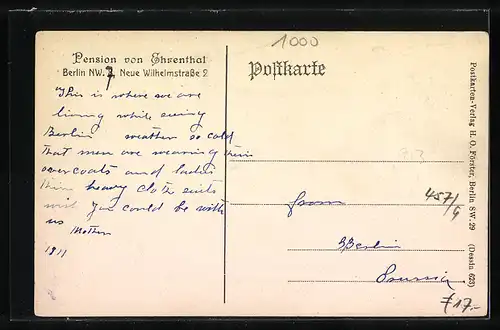 Pension von Ehsenthal
Berlin NW. 7, Neue Wilhelmstraße 2
This is where we are
living while seeing
Berlin weather so cold
that men are wearing their
overcoats and ladies
their heavy cloth suits
wish you could be with
us
Mother
1911
1000
Postkarte
from
Berlin
Prussia
457/4
€17.-
Postkarten-Verlag H. O. Förster, Berlin SW. 29 (Dessin 623)